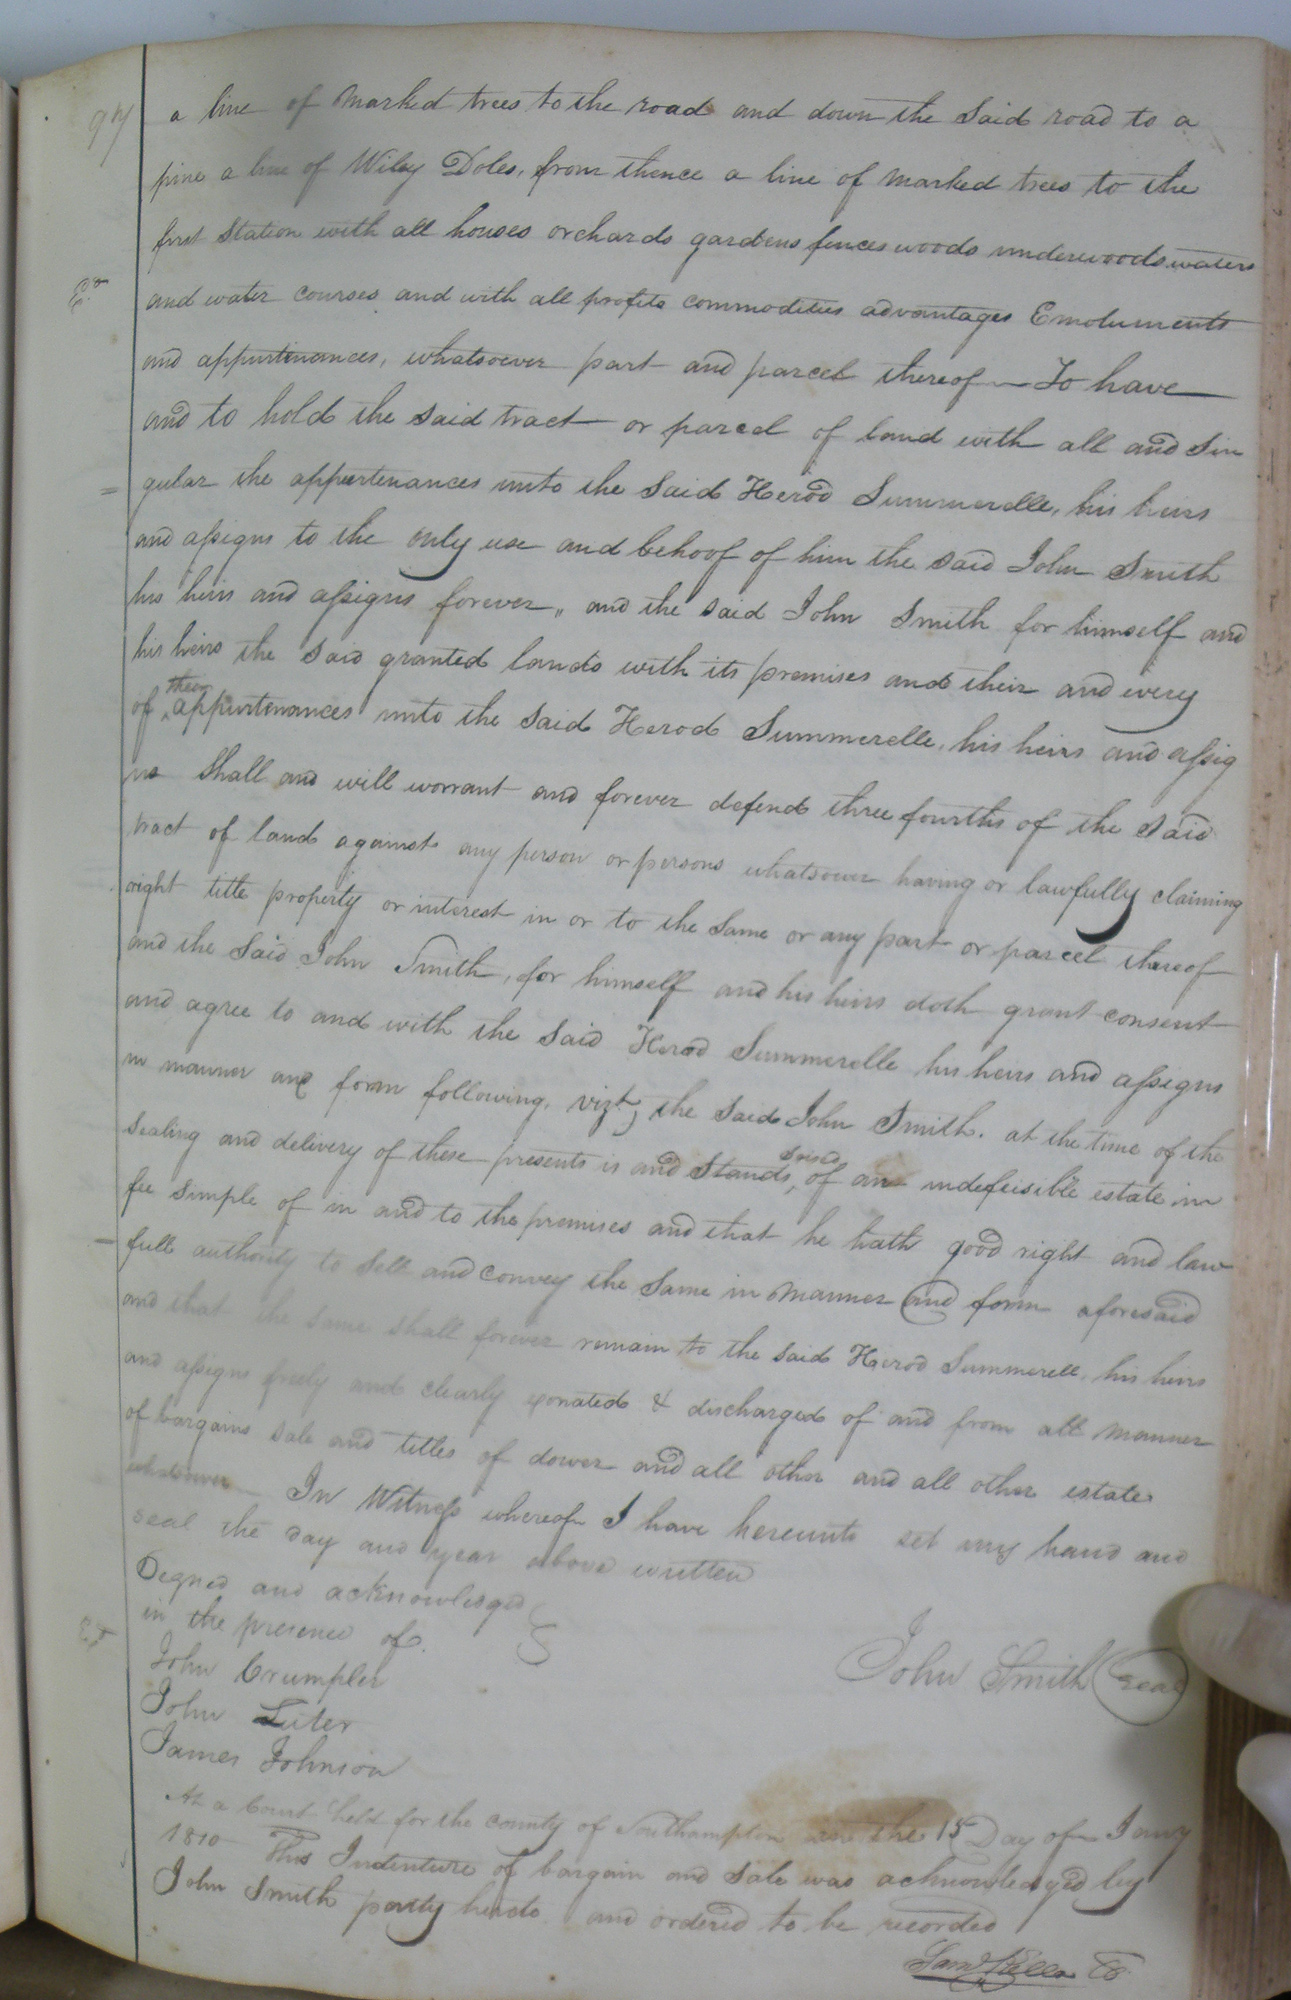 a line of marked trees to the road and down the Said road to a
pine a line of Wiley Doles, from thence a line of marked trees to the
first Station with all houses orchards gardens fences woods underwoods waters
Ex.
and water courses and with all profits commodities advantages Emoluments
and appurtenances, whatsoever part and parcel thereof — To have
and to hold the said tract or parcel of land with all and Sin
gular the appurtenances unto the Said Herod Summerelle, his heirs
and assigns to the only use and behoof of him the said John Smith
his heirs and assigns forever,, and the said John Smith for himself and
his heirs the Said granted lands with its premises and their and every
of their appurtenances unto the Said Herod Summerelle, his heirs and assig
ns Shall and will worrant and forever defend three fourths of the Said
tract of land against any person or persons whatsoever having or lawfully claiming
right title property or interest in or to the Same or any part or parcel thereof
and the Said John Smith, for himself and his heirs doth grant consent
and agree to and with the Said Herod Summerelle his heirs and assigns
in manner and form following, vizt, the said John Smith. at the time of the
sealing and delivery of these presents is and Stands, Seised of an indefeisible estate in
fee simple of in and to the premises and that he hath good right and law
full authority to Sell and convey the Same in manner and form aforesaid
and that the same shall forever remain to the said Herod Summerell, his heirs
and assigns freely and clearly exonated & discharged of and from all manner
of bargains sale and titles of dower and all other and all other estates
whatsoever — In Witness whereof I have hereunto set my hand and
seal the day and year above written
Signed and acknowledged
in the presence of.
John Crumpler
John Smith Seal
John Luter
James Johnson
At a Court held for the county of Southampton the 15 Day of Jany
1810 This Indenture of bargain and Sale was acknowledged by
John Smith party hereto and ordered to be recorded
Saml Kello